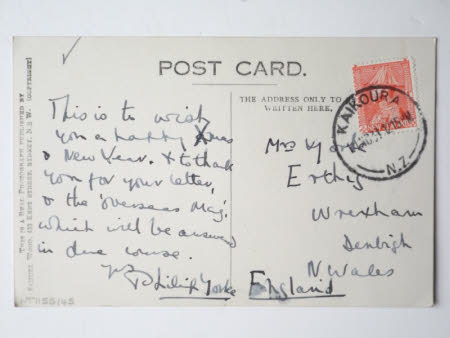 POST CARD.
THE ADDRESS ONLY TO
WRITTEN HERE,
This is to wish
you a happy Xmas
& New Year. & to thank
you for your letter,
& the 'overseas Mag'.
which will be answered
in due course.
Philip Yorke
Mrs Yorke
Erthig
Wrexham
Denbigh
N Wales
England
KAIKOURA
N.Z
THIS IS A REAL PHOTOGRAPH PUBLISHED BY
WOOD, KENT STREET, SYDNEY, N.S.W. (COPYRIGHT)